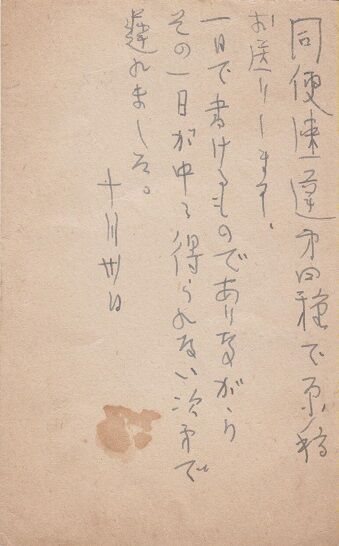 同便速達第四種で原稿
お送りします、
一日で書けるものでありながら
その一日が中々得られない次第で
遅れました。
十月卅日